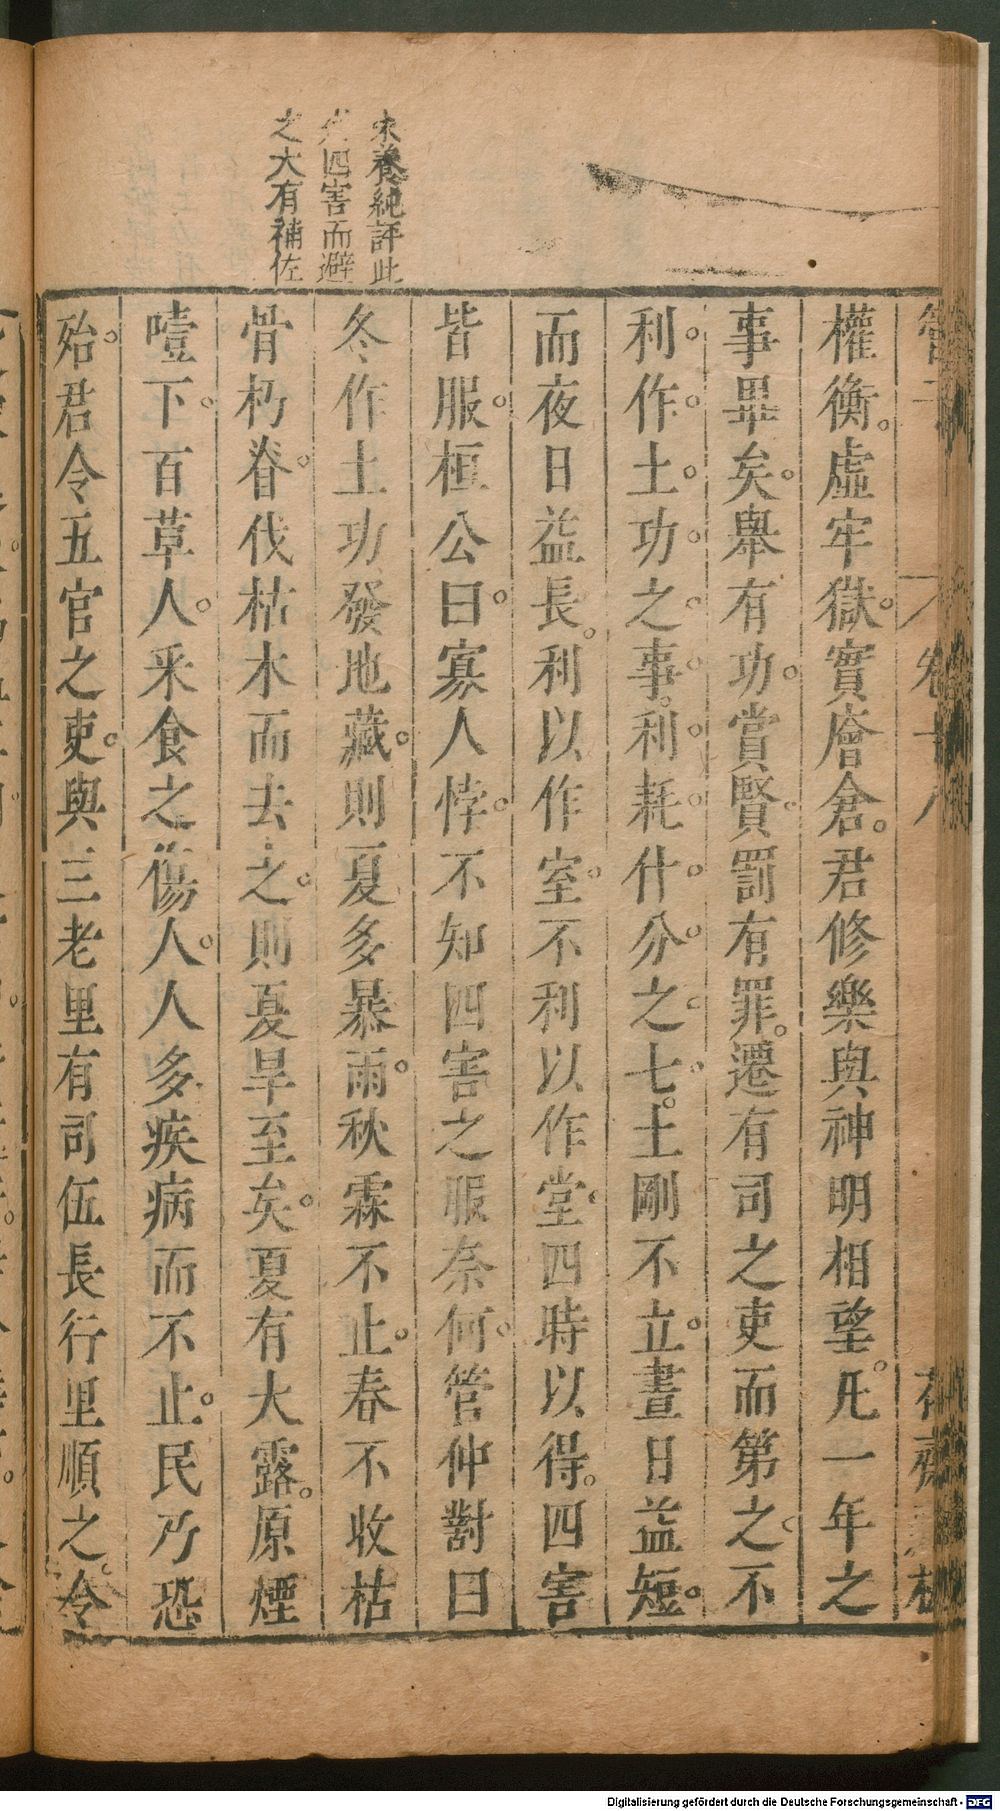 朱養純評此
四害而避
之大有補佐
管子
卷十八
花齋藏板
權衡虛牢獄實廥倉君修樂與神明相望凡一年之
事畢矣舉有功賞賢罰有罪遷有司之吏而第之不
利作土功之事利耗什分之七土剛不立晝日益短
而夜日益長利以作室不利以作堂四時以得四害
皆服桓公曰寡人悖不知四害之服奈何管仲對曰
冬作土功發地藏則夏多暴雨秋霖不止春不收枯
骨朽脊伐枯木而去之則夏旱至矣夏有大露原煙
噎下百草人采食之傷人人多疾病而不止民乃恐
殆君令五官之吏與三老里有司伍長行里順之令
Digitalisierung gefördert durch die Deutsche Forschungsgemeinschaft - DFG